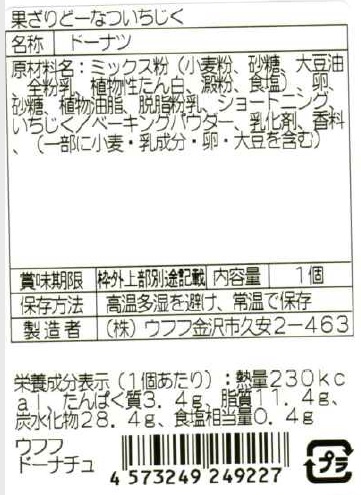 果ざりどーなついちじく
名称 ドーナツ
原材料名：ミックス粉（小麦粉、砂糖、大豆油
、全粉乳、植物性たん白、澱粉、食塩）、卵、
砂糖、植物油脂、脱脂粉乳、ショートニング、
いちじく／ベーキングパウダー、乳化剤、香料
、（一部に小麦・乳成分・卵・大豆を含む）
賞味期限 枠外上部別途記載 内容量 1個
保存方法 高温多湿を避け、常温で保存
製造者 （株）ウフフ金沢市久安2－463
栄養成分表示（1個あたり）：熱量230kc
al、たんぱく質3.4g、脂質11.4g、
炭水化物28.4g、食塩相当量0.4g
ウフフ
ドーナチュ
4 573249 249227
プラ